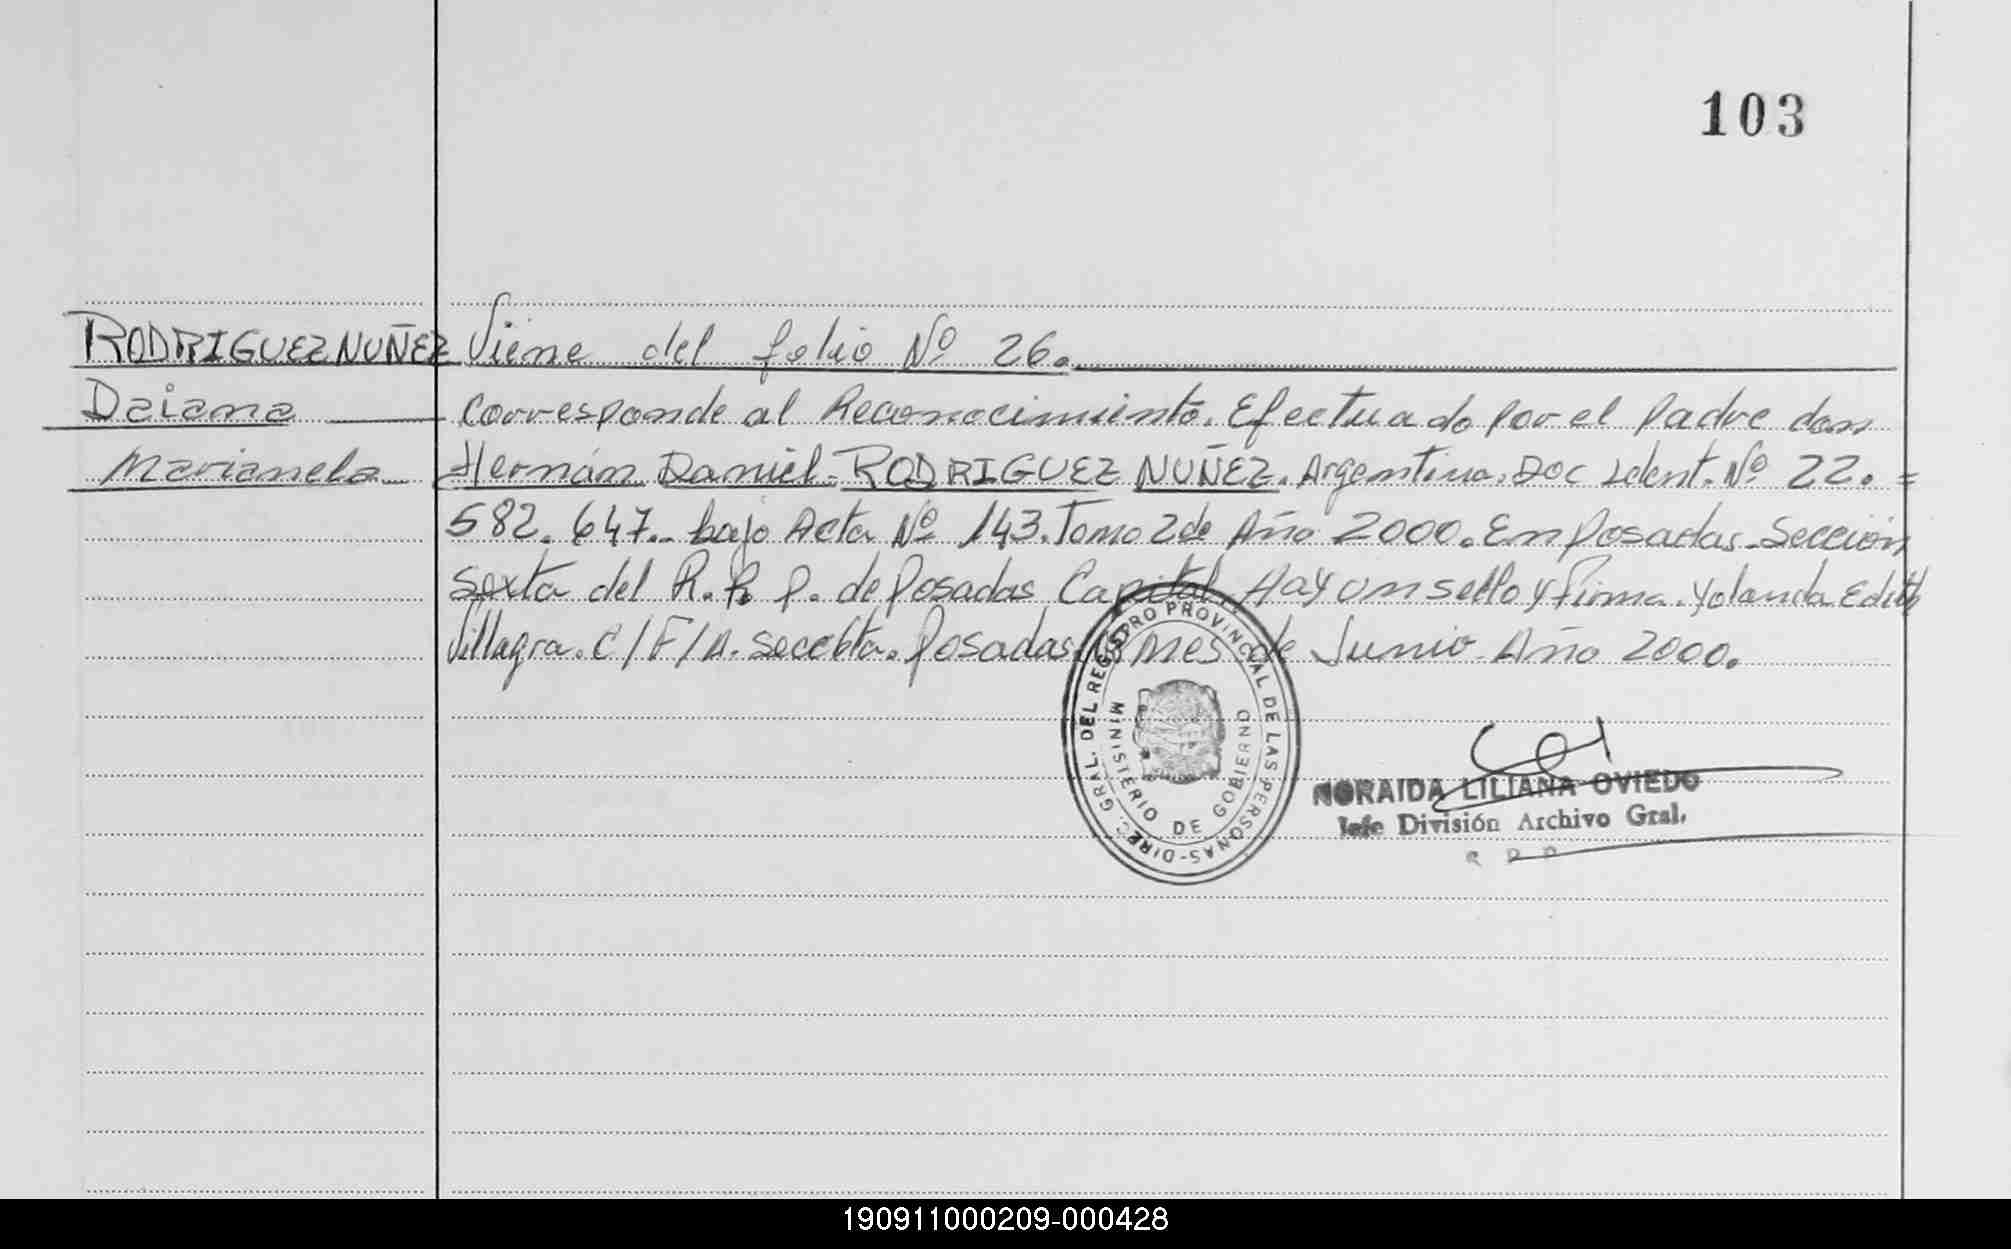 103
RODRIGUEZ NUÑEZ Viene del folio Nº 26.
Daiana Corresponde al Reconocimiento. Efectuado por el Padre don
Marianela Hernán Daniel. RODRIGUEZ NUÑEZ. Argentino. Doc Ident. Nº 22. =
582.647.. bajo Acta Nº 143. Tomo 2 de Año 2000. En Posadas. Sección
Sexta del R. P. de Posadas Capital. Hay un sello y firma. Yolanda Edith
Villagra. C/F/A. Posadas mes de Junio. Año 2000.
DIREC. GRAL. DEL REGISTRO PROVINCIAL DE LAS PERSONAS
MINISTERIO DE GOBIERNO
NORAIDA LILIANA OVIEDO
Jefe División Archivo Gral.
190911000209-000428